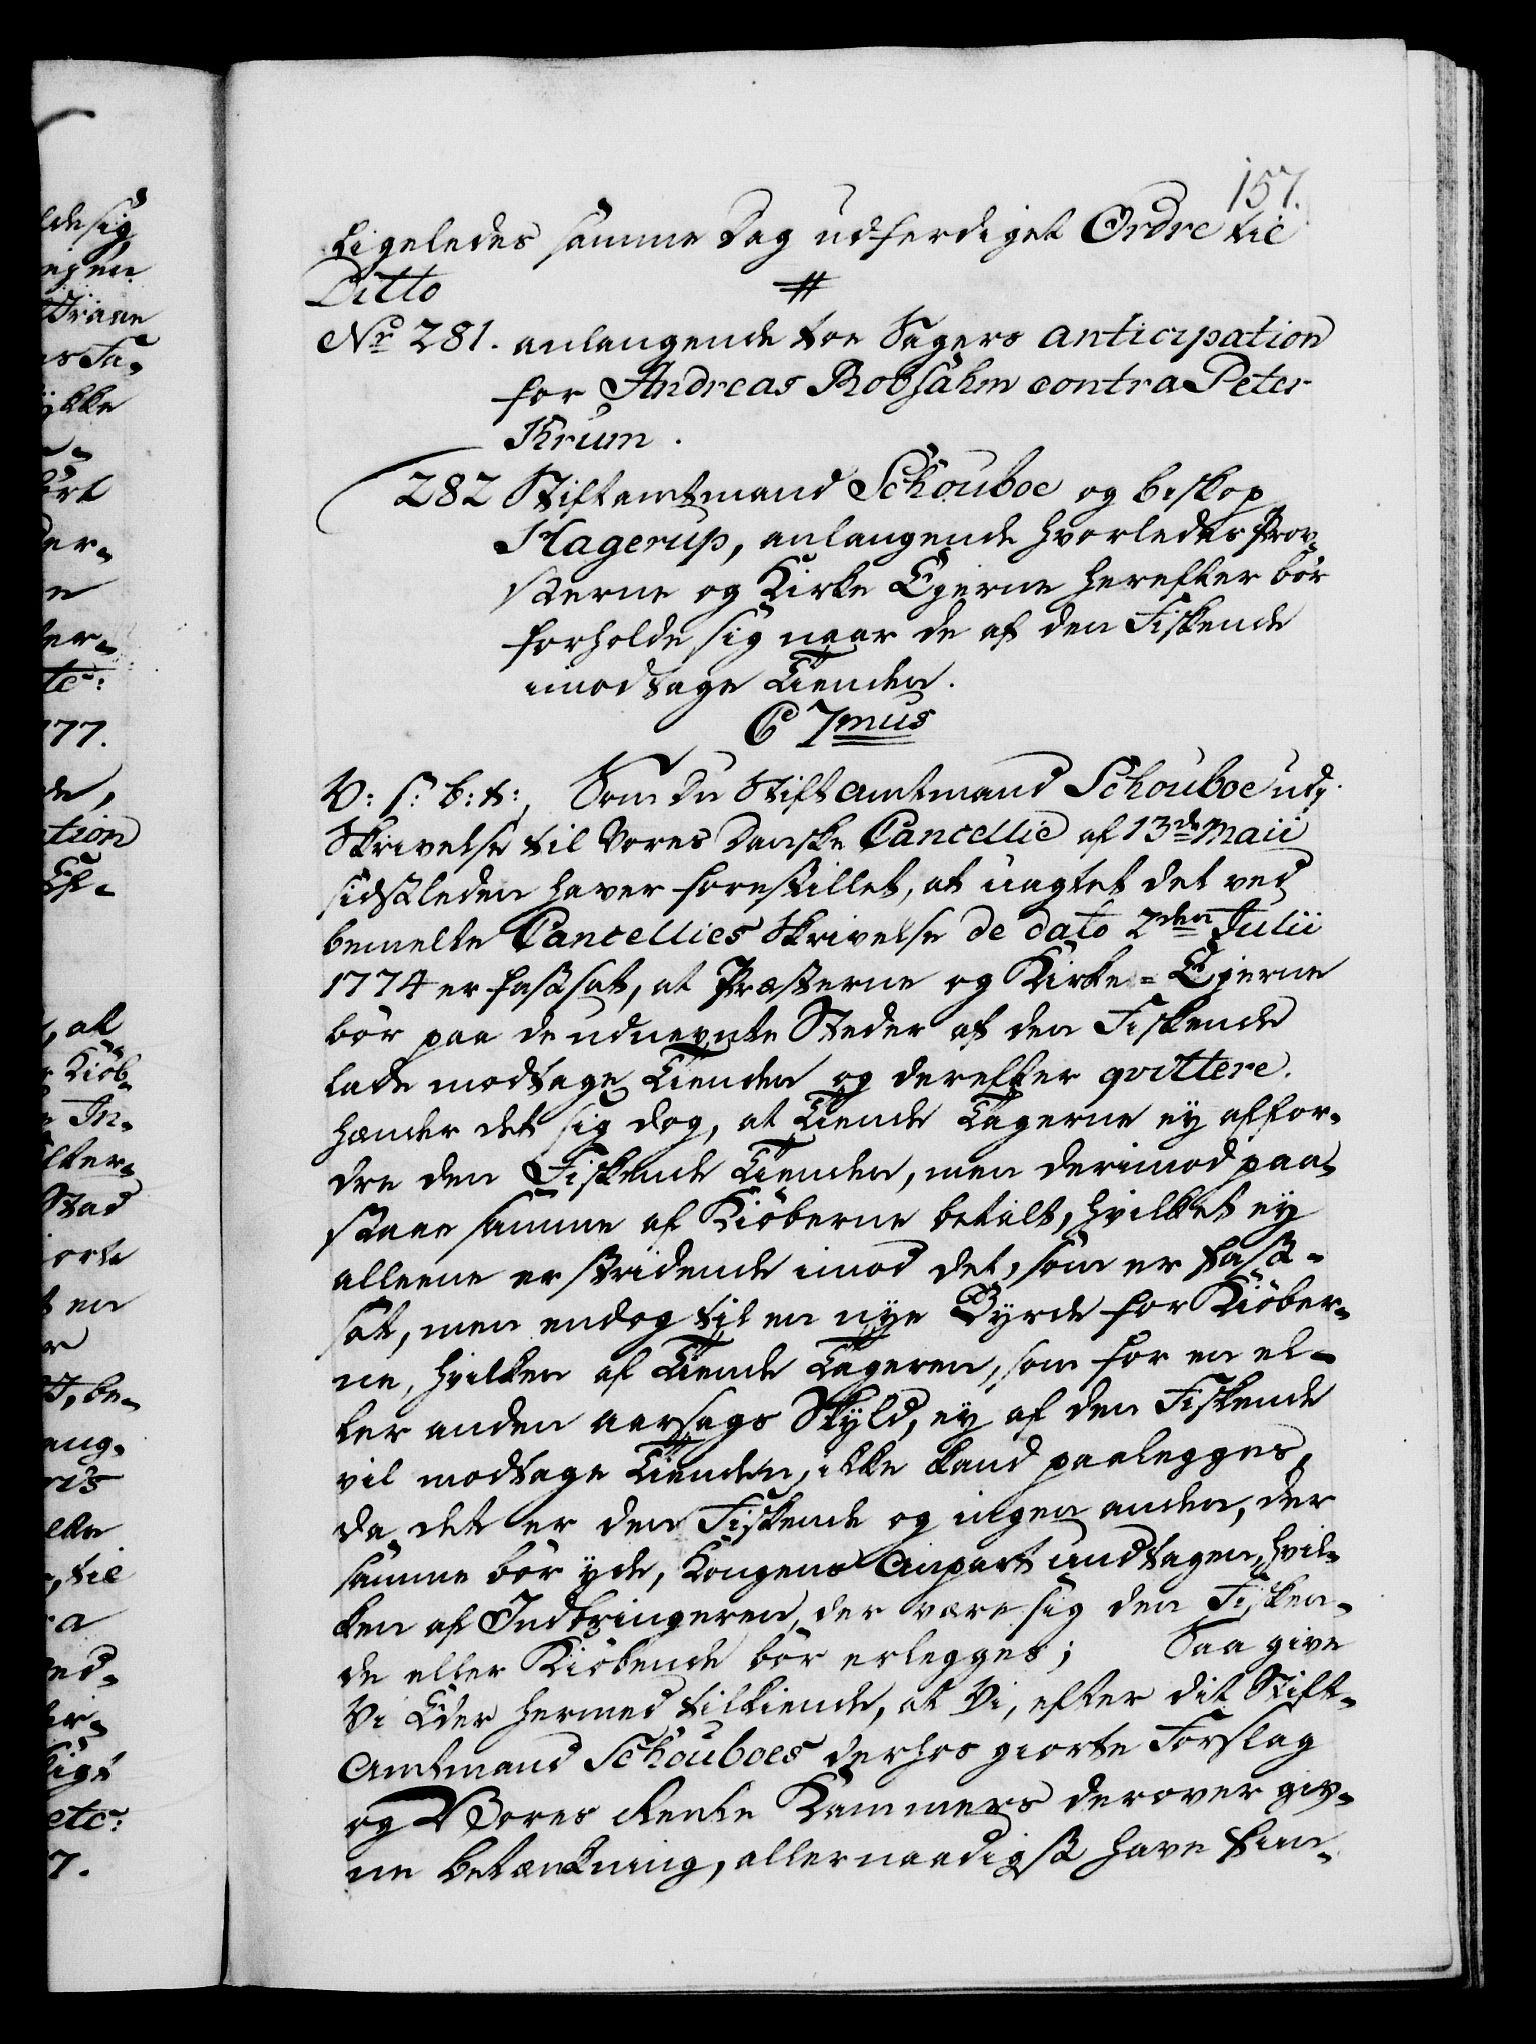 157.
Ligeledes samme Dag udferdiget Ordre til
Ditto #
No 281. anlangende toe Sagers anticipation
for Andreas Robsahm contra Peter
Krum.
282 Stiftamtmand Schouboe og biskop
Hagerup, anlangende hvorledes Prov-
sterne og Kirke Ejerne herefter bør
forholde sig naar de af den Fiskende
imodtage Tienden.
C 7mus
V: s: b: t:, Som Du Stiftamtmand Schouboe udj
Skrivelse til Vores Danske Cancellie af 13de Maii
sidstleden haver forestillet, at uagtet det ved
bemelte Cancellies Skrivelse de dato 2den Julii
1774 er fastsat, at Præsterne og Kirke-Ejerne
bør paa de udnevnte Steder af den Fiskende
lade modtage Tienden og derefter qvittere.
hender det sig dog, at Tiende Tagerne ey affor-
dre den Fiskende Tienden, men derimod paa-
staae samme af Kiøberne betalt, hvilket ey
alleene er stridende imod det, som er fast-
sat, men endog til en nye Byrde for Kiøber-
ne, hvilken af Tiende Tageren, som for en el-
ler anden aarsags Skyld, ey af den Fiskende
vil modtage Tienden, ikke kand paalegges,
da det er den Fiskende og ingen anden, der
samme bør yde, Kongens Anpart undtagen, hvil-
ken af Indbringeren, der være sig den Fisken-
de eller Kiøbende bør erlegges; Saa give
Vi Eder hermed tilkiende, at Vi, efter dit Stift-
Amtmand Schouboes derhos giorte Forslag
og Vores Rente Kammers derover giv-
ne betænkning, allernaadigst have fun-